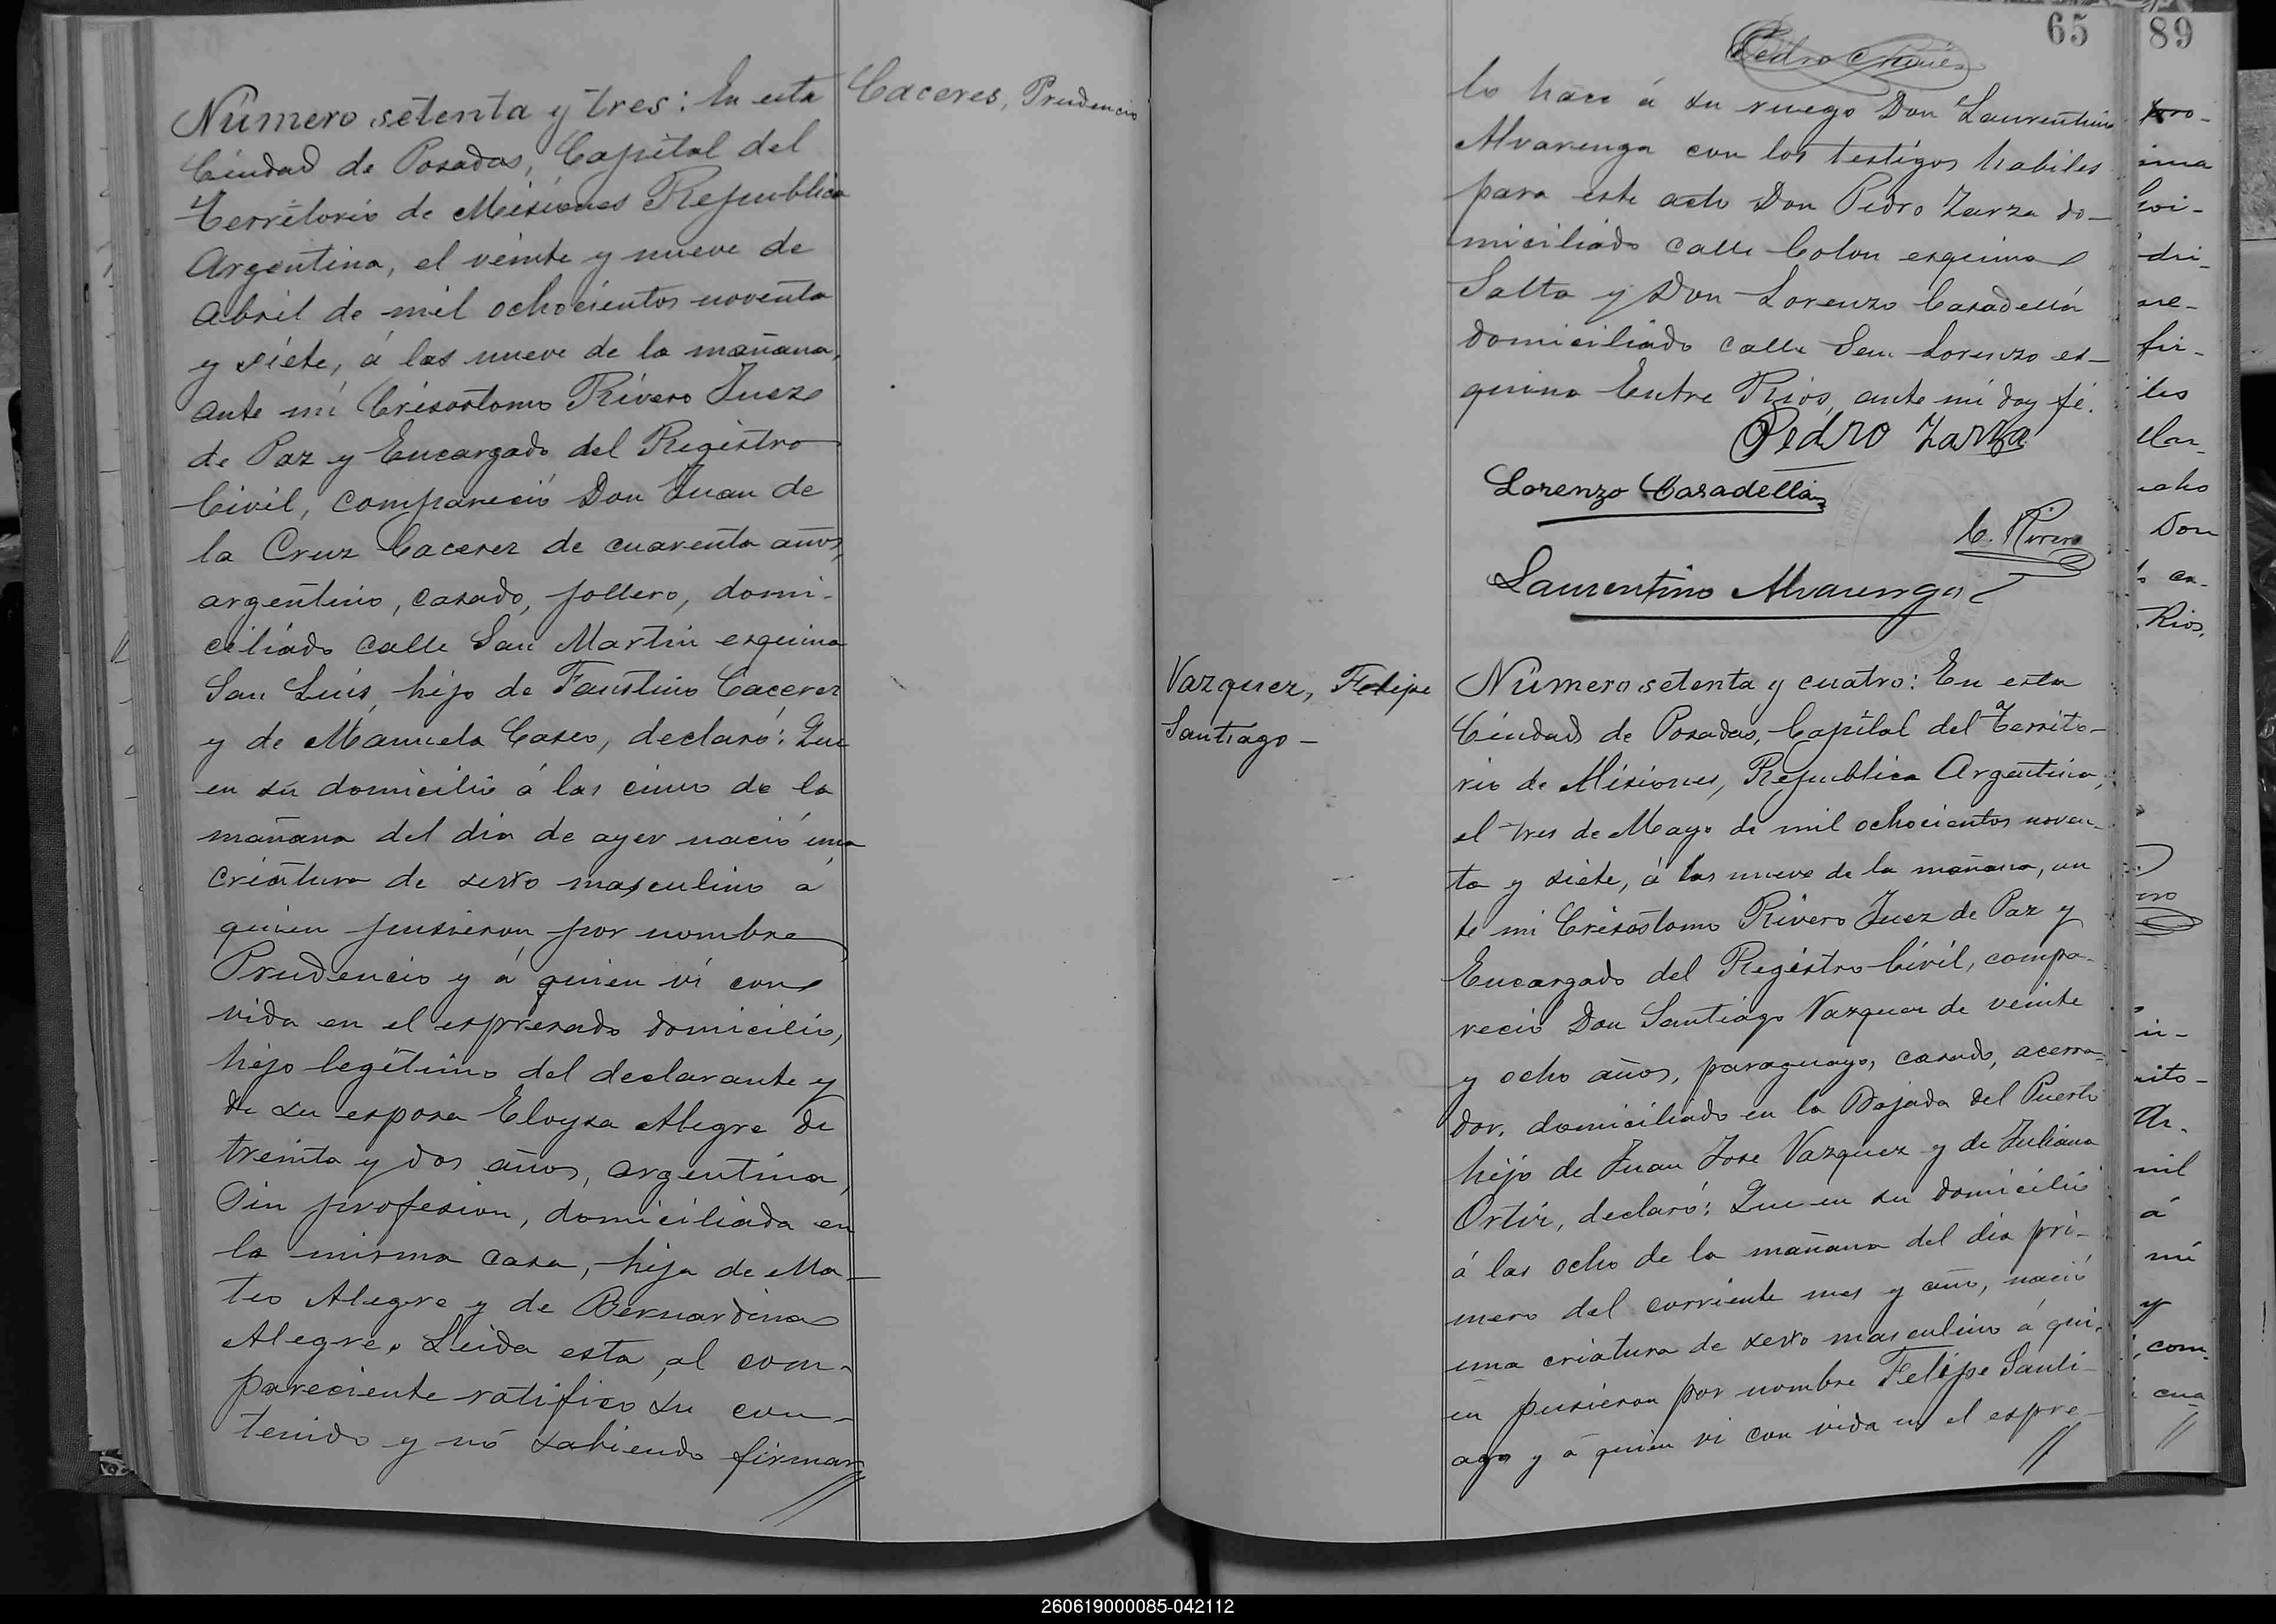 Número setenta y tres: En esta
Ciudad de Posadas, Capital del
Territorio de Misiones Republica
Argentina, el veinte y nueve de
Abril de mil ochocientos noventa
y siete, á las nueve de la mañana,
ante mi Crisostomo Rivero Juez
de Paz y Encargado del Registro
Civil, compareció Don Juan de
la Cruz Cacerez de cuarenta años,
argentino, casado, domi-
ciliado calle San Martin esquina
San Luis, hijo de Faustino Cacerez
y de Manuela Caseo, declaró: Que
en su domicilio á las cinco de la
mañana del dia de ayer nació una
criatura de sexto masculino á
quien pusieron por nombre
Prudencio y á quien vi con
vida en el espresado domicilio,
hijo legitimo del declarante y
de su esposa Eloysa Alegre de
treinta y dos años, argentina,
sin profesion, domiciliada en
la misma casa, hija de Ma-
teo Alegre y de Bernardina
Alegre. Leida esta al com-
pareciente ratifico su con-
tenido y nó sabiendo firmar
//
Caceres, Prudencio
65
Pedro
lo hace á su ruego Don Laurentino
Alvarenga con los testigos habiles
para este acto Don Pedro Zarza do-
miciliado calle Colon esquina
Salta y Don Lorenzo Casadellá
domiciliado calle San Lorenzo es-
quina Entre Rios, ante mi doy fé.
Pedro Zarza
Lorenzo Casadellá
C. Rivero
Laurentino Alvarenga
Vazquez, Felipe
Santiago -
Número setenta y cuatro: En esta
Ciudad de Posadas, Capital del Territo-
rio de Misiones, Republica Argentina,
el tres de Mayo de mil ochocientos noven-
ta y siete, á las nueve de la mañana, an
te mi Crisostomo Rivero Juez de Paz y
Encargado del Registro Civil, compa-
reció Don Santiago Vazquez de veinte
y ocho años, paraguayo, casado, acerra-
dor, domiciliado en la Bajada del Puerto
hijo de Juan Jose Vazquez y de Juliana
Ortiz, declaró: Que en su domicilio
á las ocho de la mañana del dia pri-
mero del corriente mes y año, nació
una criatura de sexto masculino á qui-
en pusieron por nombre Felipe Santi-
ago y á quien vi con vida en el espre-
//
89
pro-
ima
dri-
ne-
fir-
les
Don
Rios,
in-
rito-
Ar-
mil
á
mi
y
, com-
cua
//
260619000085-042112